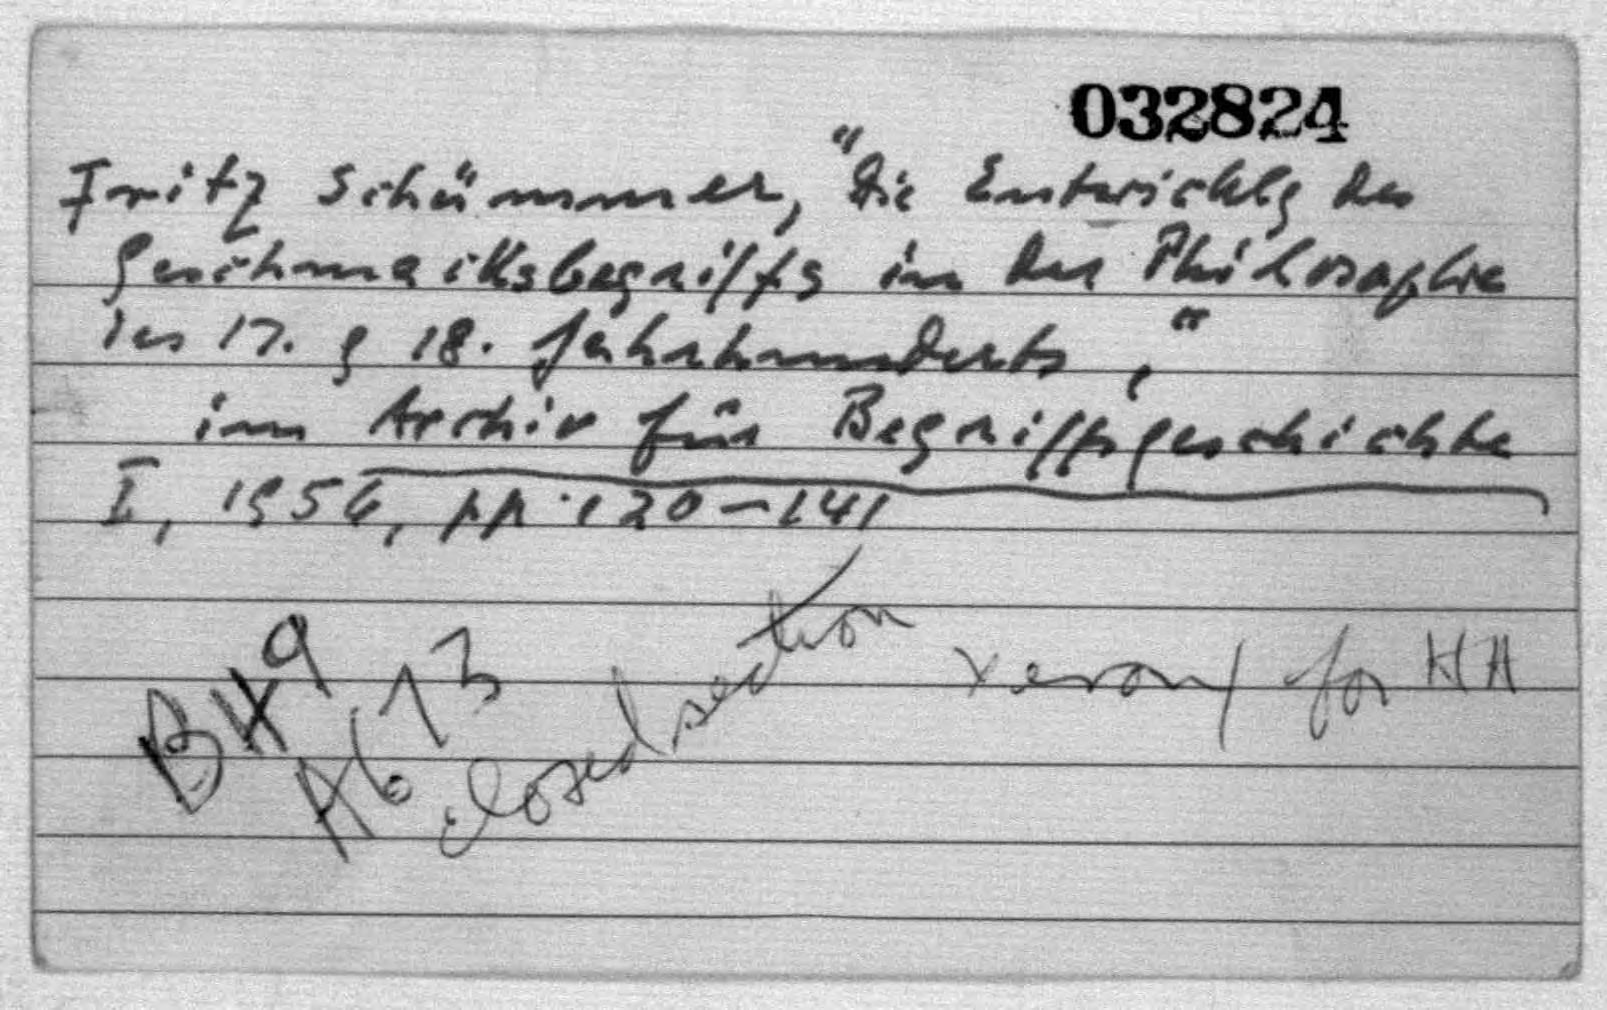 032824
Fritz Schümmer, "Die Entwicklg des
Geschmacksbegriffs in der Philosophie
des 17. & 18. Jahrhunderts,"
im Archiv für Begriffsgeschichte
I, 1956, pp. 120-141
BH9
A673
closed section
xerox for HA